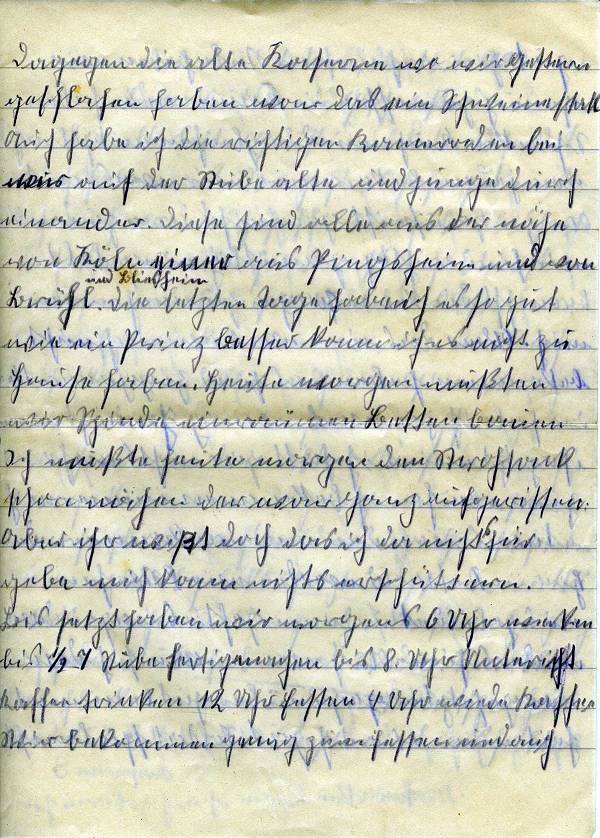 Dagegen die alte Kaserne wo wir gestern
geschlafen haben war das ein Schweinestall
Auch habe ich die richtigen Kameraden bei
mir auf der Stube alte und junge durch
einander. Diese sind alle aus der nähe
von Köln einer aus Pingsheim und von
und Bliesheim
Brühl. Die letzten Tage habe ich es so gut
wie ein Prinz besser kann ich es nicht zu
Hause haben. Heute morgen mußten
wir Spinde einräumen Betten bauen
Ich mußte heute morgen den Strohsack
der war ganz aufgerissen.
Aber ihr wißt doch das ich da nichts für
gebe mich kann nichts erschüttern.
Bis jetzt haben wir morgens 6 Uhr wecken
bis 1/2 7 Stube fertigmachen bis 8. Uhr Unterricht
Kaffee trinken 12 Uhr Essen 4 Uhr wieder Kaffee
Wir bekommen genug zum essen und auch